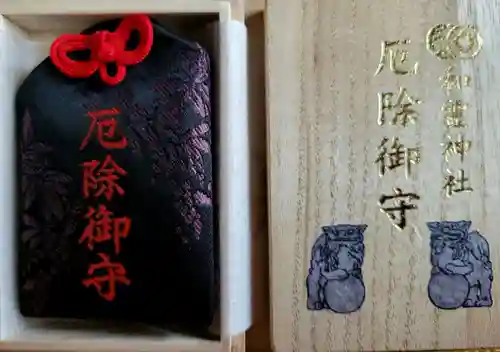 厄除御守
厄除御守
和霊神社